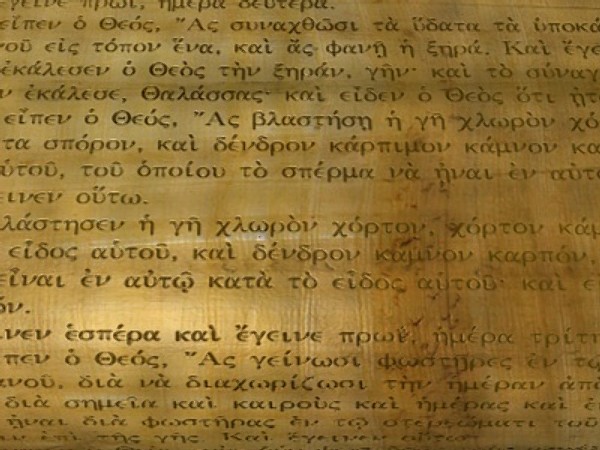 ἔγεινε πρωΐ, ἡμέρα δευτέρα.
εἶπεν ὁ Θεός, Ἂς συναχθῶσι τὰ ὕδατα τὰ ὑποκά
νοῦ εἰς τόπον ἕνα, καὶ ἂς φανῇ ἡ ξηρά. Καὶ ἔγε
ἐκάλεσεν ὁ Θεὸς τὴν ξηράν, γῆν· καὶ τὸ σύναγ
ν ἐκάλεσε, Θαλάσσας· καὶ εἶδεν ὁ Θεὸς ὅτι ἦτ
εἶπεν ὁ Θεός, Ἂς βλαστήσῃ ἡ γῆ χλωρὸν χό
τα σπόρον, καὶ δένδρον κάρπιμον κάμνον κα
αὑτοῦ, τοῦ ὁποίου τὸ σπέρμα νὰ ἦναι ἐν αὐτ
εινεν οὕτω.
λάστησεν ἡ γῆ χλωρὸν χόρτον, χόρτον κάμ
εἶδος αὑτοῦ, καὶ δένδρον κάμνον καρπόν,
εἶναι ἐν αὐτῷ κατὰ τὸ εἶδος αὑτοῦ· καὶ ε
όν.
ινεν ἑσπέρα καὶ ἔγεινε πρωΐ, ἡμέρα τρίτη
πεν ὁ Θεός, Ἂς γείνωσι φωστῆρες ἐν τῷ
ανοῦ, διὰ νὰ διαχωρίζωσι τὴν ἡμέραν ἀπὸ
διὰ σημεῖα καὶ καιροὺς καὶ ἡμέρας καὶ ἐν
ἦναι διὰ φωστῆρας ἐν τῷ στερεώματι τοῦ
ἐπὶ τῆς γῆς. Καὶ ἔγεινεν οὕτω.